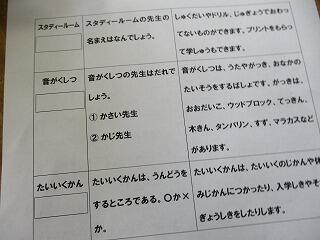 スタディールーム
スタディールームの先生の
名まえはなんでしょう。
しゅくだいやドリル、じゅぎょうでおわっ
てないものができます。プリントをもらっ
て学しゅうもできます。
音がくしつ
音がくしつの先生はだれで
しょう。
① かさい先生
② かじ先生
音がくしつは、うたやがっき、おなかの
たいそうをするばしょです。がっきは、
おおだいこ、ウッドブロック、てっきん、
木きん、タンバリン、すず、マラカスなど
があります。
たいいくかん
たいいくかんは、うんどうを
するところである。〇か×
か。
たいいくかんは、たいいくのじかんや休
みじかんにつかったり、入学しきやそ
ぎょうしきをしたりします。